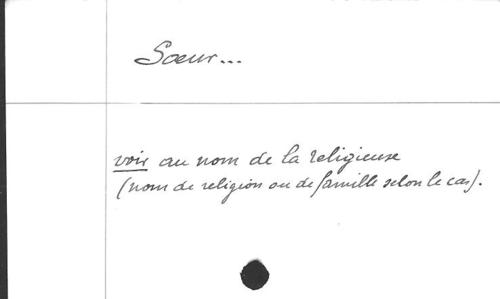 Sœur...
voir au nom de la religieuse
(nom de religion ou de famille selon le cas).